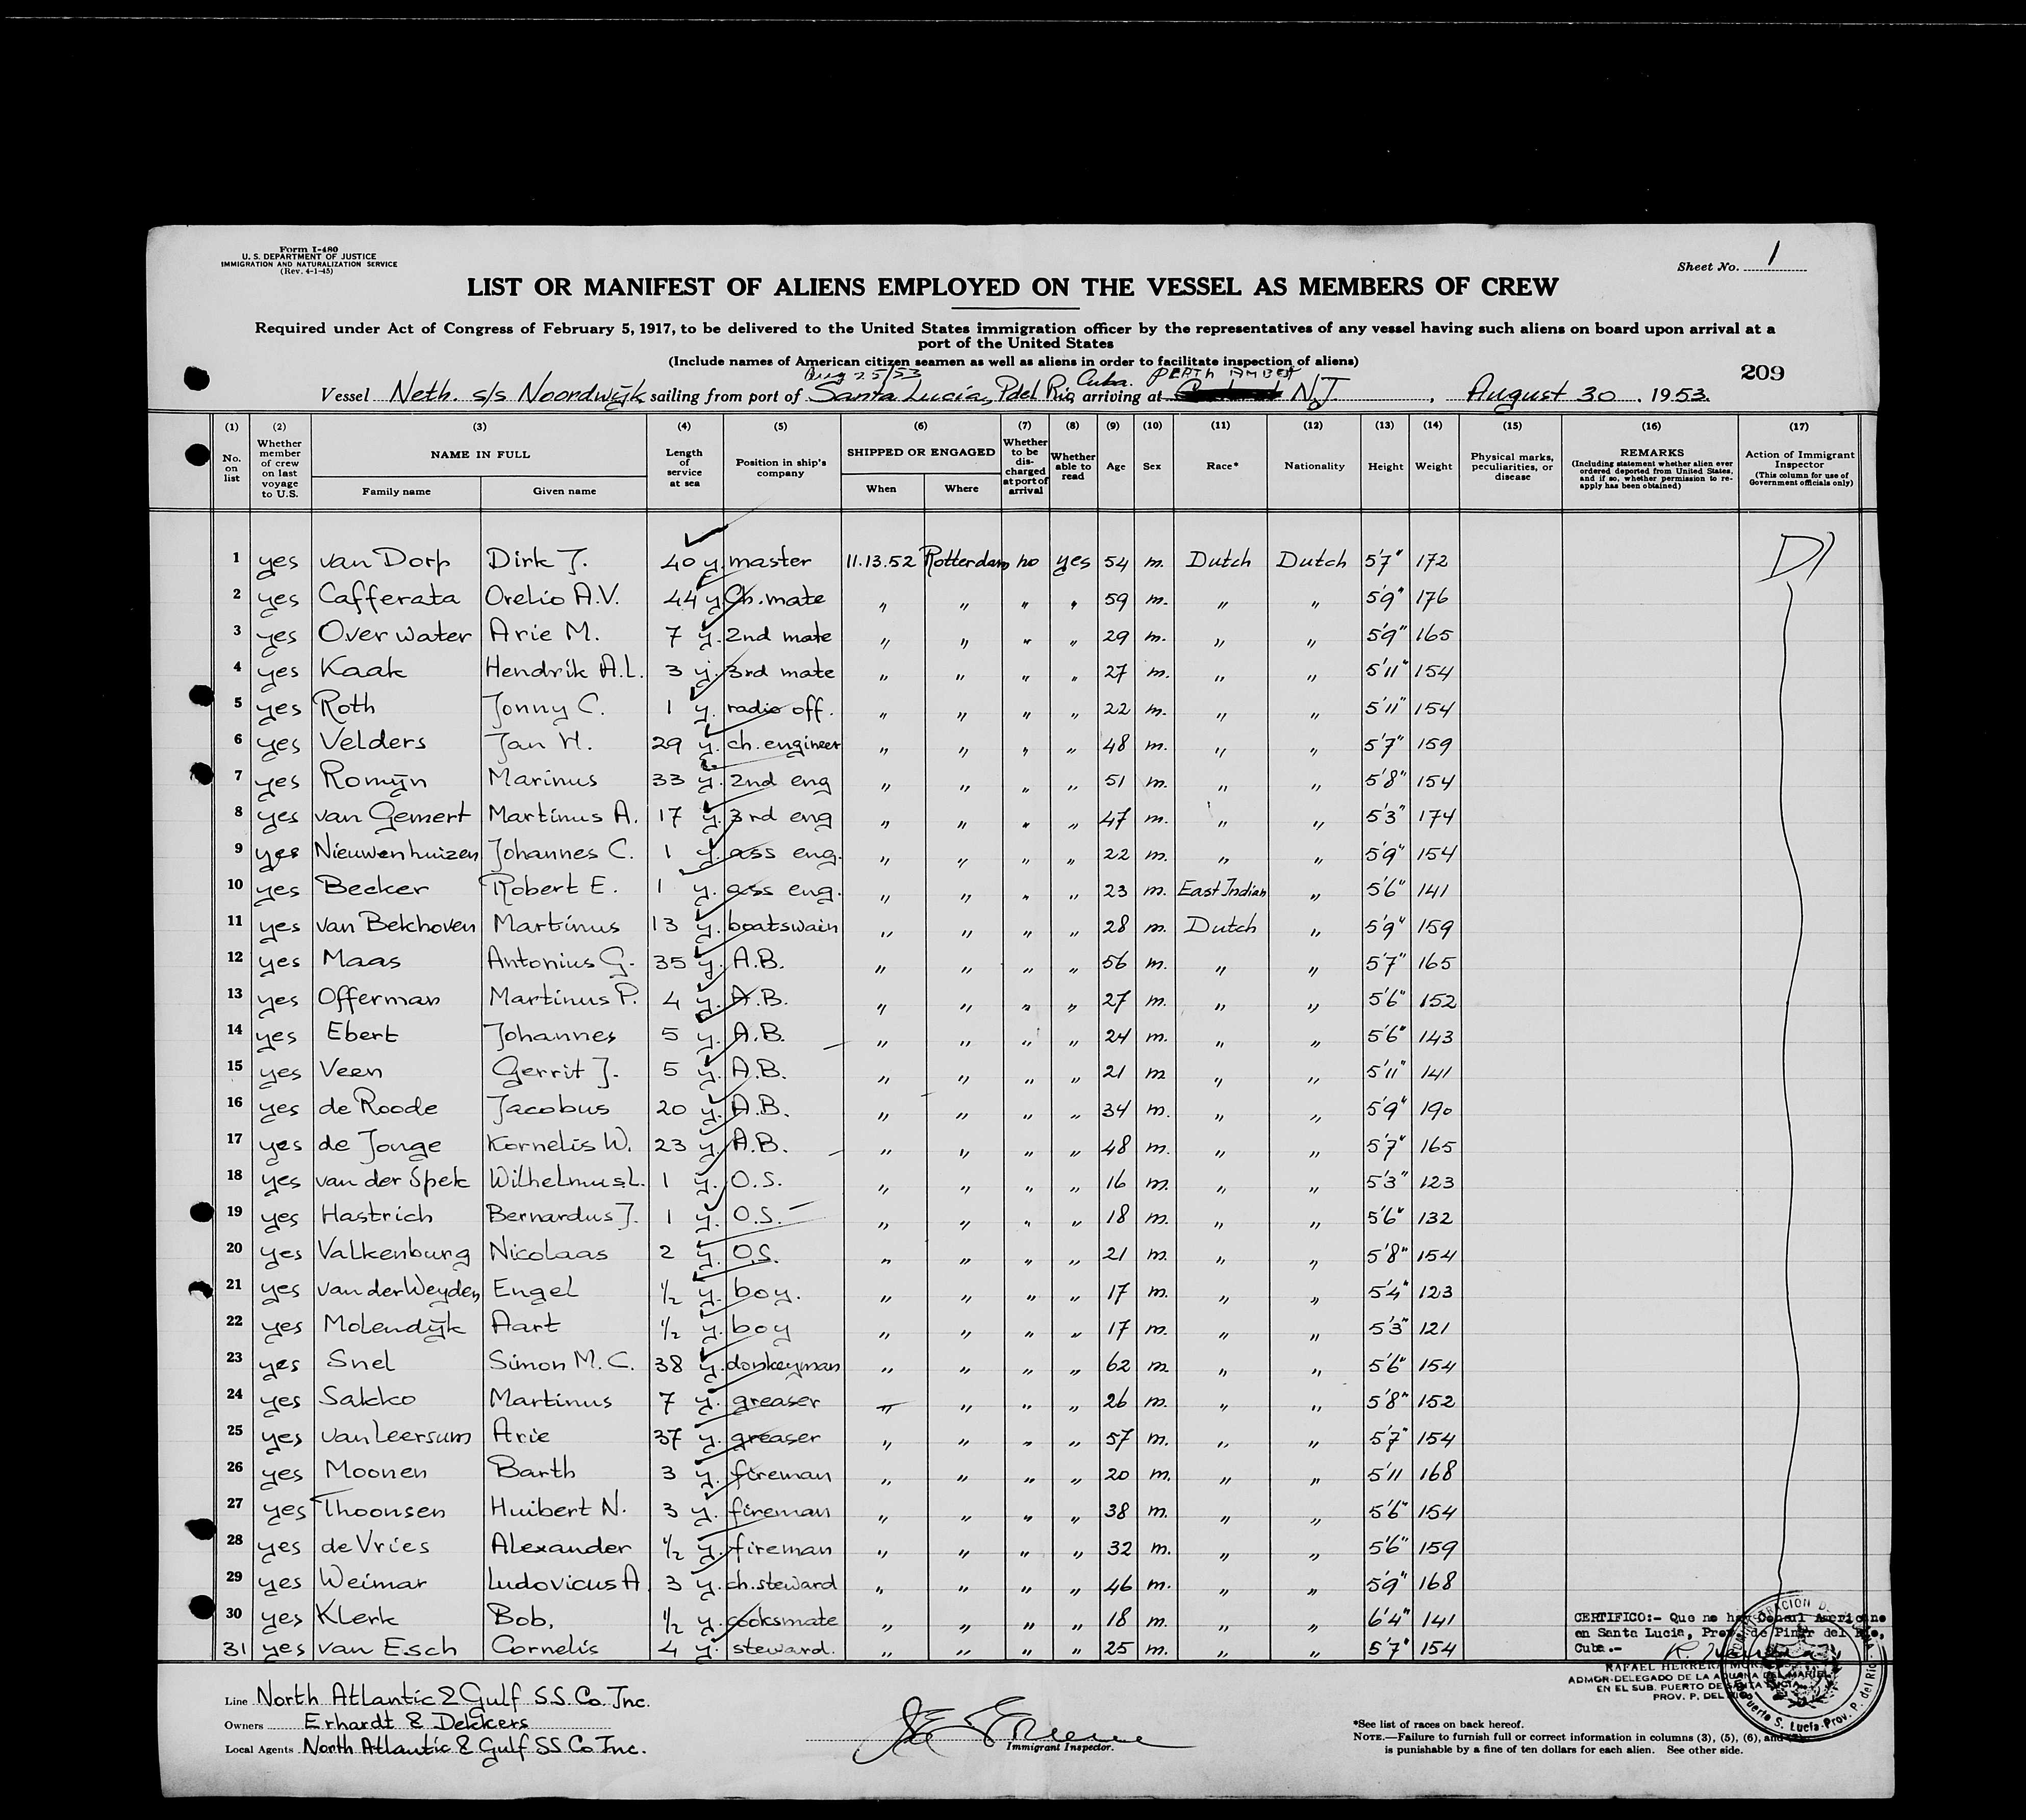 Form I-480
U. S. DEPARTMENT OF JUSTICE
IMMIGRATION AND NATURALIZATION SERVICE
(Rev. 4-1-45)
Sheet No. 1
LIST OR MANIFEST OF ALIENS EMPLOYED ON THE VESSEL AS MEMBERS OF CREW
Required under Act of Congress of February 5, 1917, to be delivered to the United States immigration officer by the representatives of any vessel having such aliens on board upon arrival at a
port of the United States
(Include names of American citizen seamen as well as aliens in order to facilitate inspection of aliens)
209
Aug 25/53 Cuba. PERTH AMBOY
Vessel Neth. s/s Noordwijk sailing from port of Santa Lucia, P del Rio arriving at N.J. , August 30 , 1953.
(1) (2) (3) (4) (5) (6) (7) (8) (9) (10) (11) (12) (13) (14) (15) (16) (17)
No. on list Whether member of crew on last voyage to U.S. NAME IN FULL Family name Given name Length of service at sea Position in ship's company SHIPPED OR ENGAGED When Where Whether to be discharged at port of arrival Whether able to read Age Sex Race* Nationality Height Weight Physical marks, peculiarities, or disease REMARKS (Including statement whether alien ever ordered deported from United States, and if so, whether permission to reapply has been obtained) Action of Immigrant Inspector (This column for use of Government officials only)
1 yes van Dorp Dirk J. 40 y. master 11.13.52 Rotterdam no yes 54 m. Dutch Dutch 5'7" 172
2 yes Cafferata Orelio A.V. 44 y. Ch. mate " " " " 59 m. " " 5'9" 176
3 yes Overwater Arie M. 7 y. 2nd mate " " " " 29 m. " " 5'9" 165
4 yes Kaak Hendrik A.L. 3 y. 3rd mate " " " " 27 m. " " 5'11" 154
5 yes Roth Jonny C. 1 y. radio off. " " " " 22 m. " " 5'11" 154
6 yes Velders Jan H. 29 y. ch. engineer " " " " 48 m. " " 5'7" 159
7 yes Romijn Marinus 33 y. 2nd eng " " " " 51 m. " " 5'8" 154
8 yes van Gemert Martinus A. 17 y. 3rd eng " " " " 47 m. " " 5'3" 174
9 yes Nieuwenhuizen Johannes C. 1 y. ass eng. " " " " 22 m. " " 5'9" 154
10 yes Becker Robert E. 1 y. ass eng. " " " " 23 m. East Indian " 5'6" 141
11 yes van Bekhoven Martinus 13 y. boatswain " " " " 28 m. Dutch " 5'9" 159
12 yes Maas Antonius G. 35 y. A.B. " " " " 56 m. " " 5'7" 165
13 yes Offerman Martinus P. 4 y. A.B. " " " " 27 m. " " 5'6" 152
14 yes Ebert Johannes 5 y. A.B. " " " " 24 m. " " 5'6" 143
15 yes Veen Gerrit J. 5 y. A.B. " " " " 21 m " " 5'11" 141
16 yes de Roode Jacobus 20 y. A.B. " " " " 34 m. " " 5'9" 190
17 yes de Jonge Kornelis W. 23 y. A.B. " " " " 48 m. " " 5'7" 165
18 yes van der Spek Wilhelmus L. 1 y. O.S. " " " " 16 m. " " 5'3" 123
19 yes Hastrich Bernardus J. 1 y. O.S. " " " " 18 m. " " 5'6" 132
20 yes Valkenburg Nicolaas 2 y. O.S. " " " " 21 m. " " 5'8" 154
21 yes van der Weyden Engel 1/2 y. boy. " " " " 17 m. " " 5'4" 123
22 yes Molendijk Aart 1/2 y. boy " " " " 17 m. " " 5'3" 121
23 yes Snel Simon M. C. 38 y. donkeyman " " " " 62 m " " 5'6" 154
24 yes Sakko Martinus 7 y. greaser " " " " 26 m. " " 5'8" 152
25 yes van Leersum Arie 37 y. greaser " " " " 57 m. " " 5'7" 154
26 yes Moonen Barth 3 y. fireman " " " " 20 m. " " 5'11 168
27 yes Thoonsen Huibert N. 3 y. fireman " " " " 38 m. " " 5'6" 154
28 yes de Vries Alexander 1/2 y. fireman " " " " 32 m. " " 5'6" 159
29 yes Weimar Ludovicus A. 3 y. ch. steward " " " " 46 m. " " 5'9" 168
30 yes Klerk Bob, 1/2 y. cooksmate " " " " 18 m. " " 6'4" 141
31 yes van Esch Cornelis 4 y. steward. " " " " 25 m. " " 5'7" 154
CERTIFICO:- Que no hay Consul Americano
en Santa Lucia, Prov. de Pinar del Rio,
Cuba.-
RAFAEL HERRERA
ADMOR-DELEGADO DE LA ADUANA DEL MARIEL
EN EL SUB. PUERTO DE SANTA LUCIA
PROV. P. DEL RIO
Puerto S. Lucia-Prov. P. del Rio
Line North Atlantic & Gulf S.S. Co. Inc.
Owners Erhardt & Dekkers
Local Agents North Atlantic & Gulf SS Co Inc.
Immigrant Inspector.
*See list of races on back hereof.
NOTE.—Failure to furnish full or correct information in columns (3), (5), (6), and
is punishable by a fine of ten dollars for each alien. See other side.